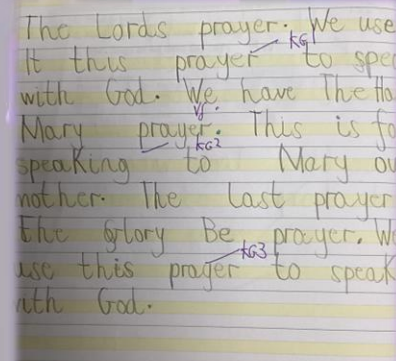 The Lords prayer. We use
It this prayer KG to spe
with God. We have The Ha
Mary prayer. This is fo
KG2
speaking to Mary ou
mother. The last prayer
the Glory Be prayer. We
KG3
use this prayer to speak
with God.